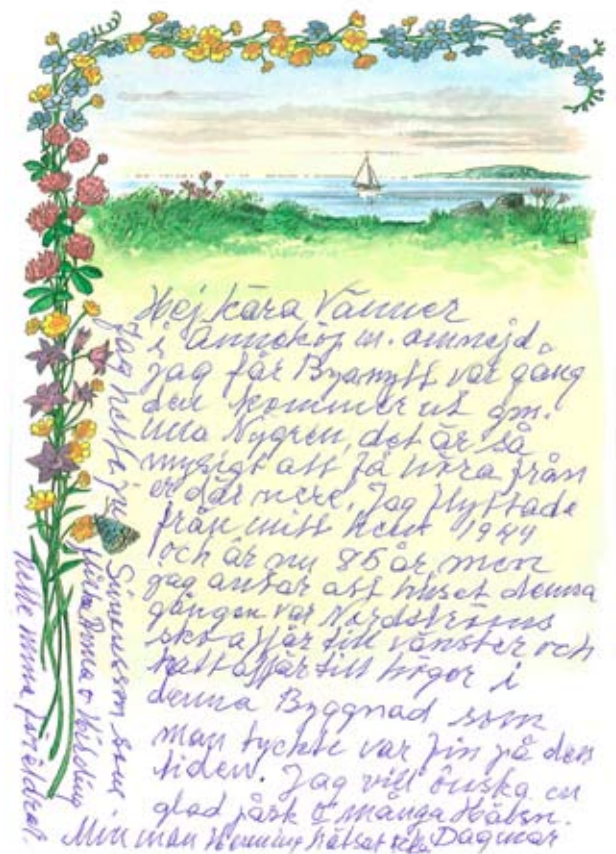 Hej kära Vänner
i Anneköp m. omnejd.
Jag får Byanytt var gång
den kommer ut gm.
Ulla Nygren, det är så
mysigt att få höra från
er där nere. Jag flyttade
från mitt hem 1944
och är nu 85 år, men
jag antar att huset denna
gången var Nordströms
skoaffär till vänster och
hattaffär till höger i
denna Byggnad som
man tyckte var fin på den
tiden. Jag vill önska en
glad påsk o många Hälsn.
Min man Henning hälsar också Dagmar
Jag hette ju Simonsson som
flicka o
hette mina föräldrar.